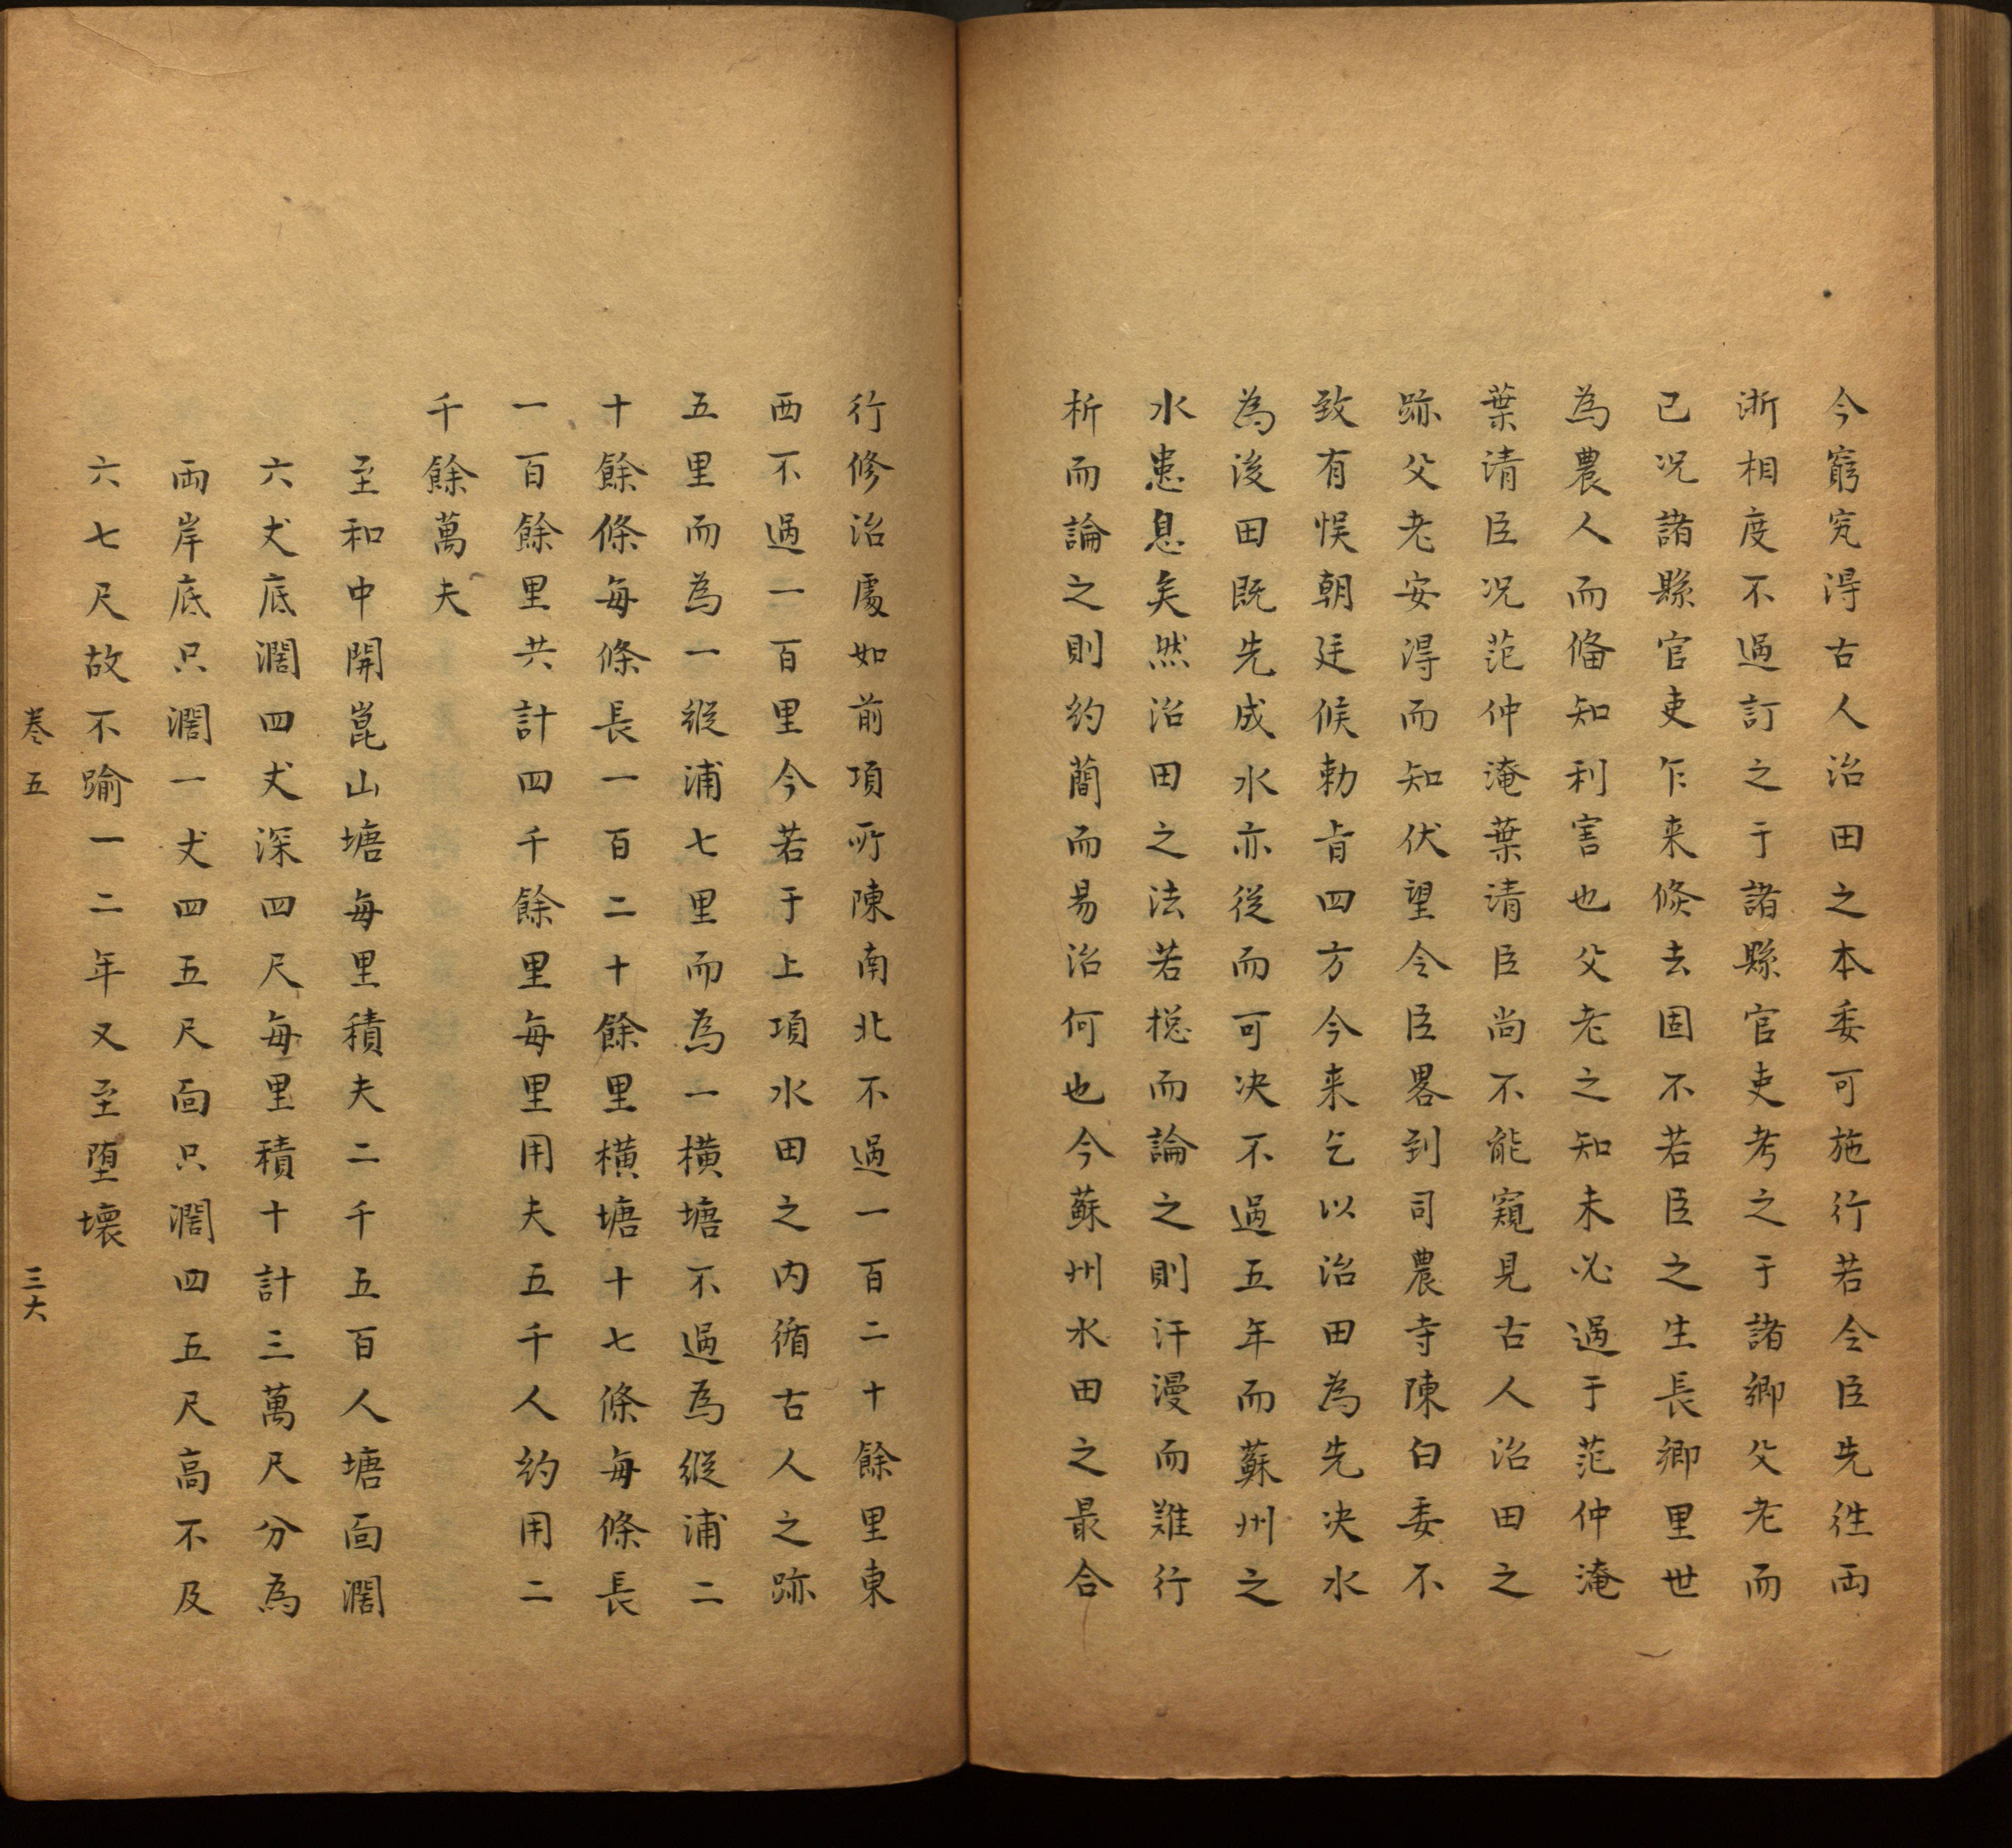 今窮究淂古人治田之本委可施行若令臣先徃両
浙相度不過訂之于諸縣官吏考之于諸鄉父老而
已况諸縣官吏乍来倐去固不若臣之生長鄉里世
為農人而俻知利害也父老之知未必過于范仲淹
葉清臣况范仲淹葉清臣尚不能窺見古人治田之
跡父老安淂而知伏望令臣畧到司農寺陳白委不
致有悮朝廷候勅㫖四方今来乞以治田為先决水
為後田既先成水亦從而可决不過五年而蘇州之
水患息矣然治田之法若棇而論之則汗漫而難行
析而論之則約蕳而易治何也今蘇州水田之最合
行修治處如前項所陳南北不過一百二十餘里東
西不過一百里今若于上項水田之内循古人之跡
五里而為一縱浦七里而為一橫塘不過為縱浦二
十餘條每條長一百二十餘里橫塘十七條每條長
一百餘里共計四千餘里每里用夫五千人約用二
千餘萬夫
至和中開崑山塘每里積夫二千五百人塘面濶
六丈底濶四丈深四尺每里積十計三萬尺分為
両岸底只濶一丈四五尺面只濶四五尺高不及
六七尺故不踰一二年又至墮壞
卷五
三六